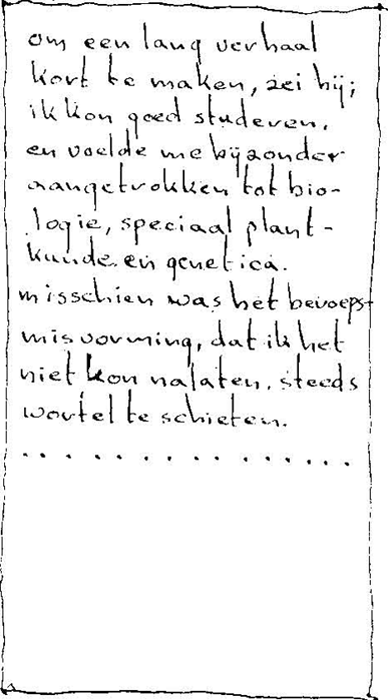 om een lang verhaal
kort te maken, zei hij;
ik kon goed studeren,
en voelde me bijzonder
aangetrokken tot bio-
logie, speciaal plant-
kunde en genetica.
misschien was het beroeps-
misvorming, dat ik het
niet kon nalaten, steeds
wortel te schieten.
. . . . . . . . . . . . . . .